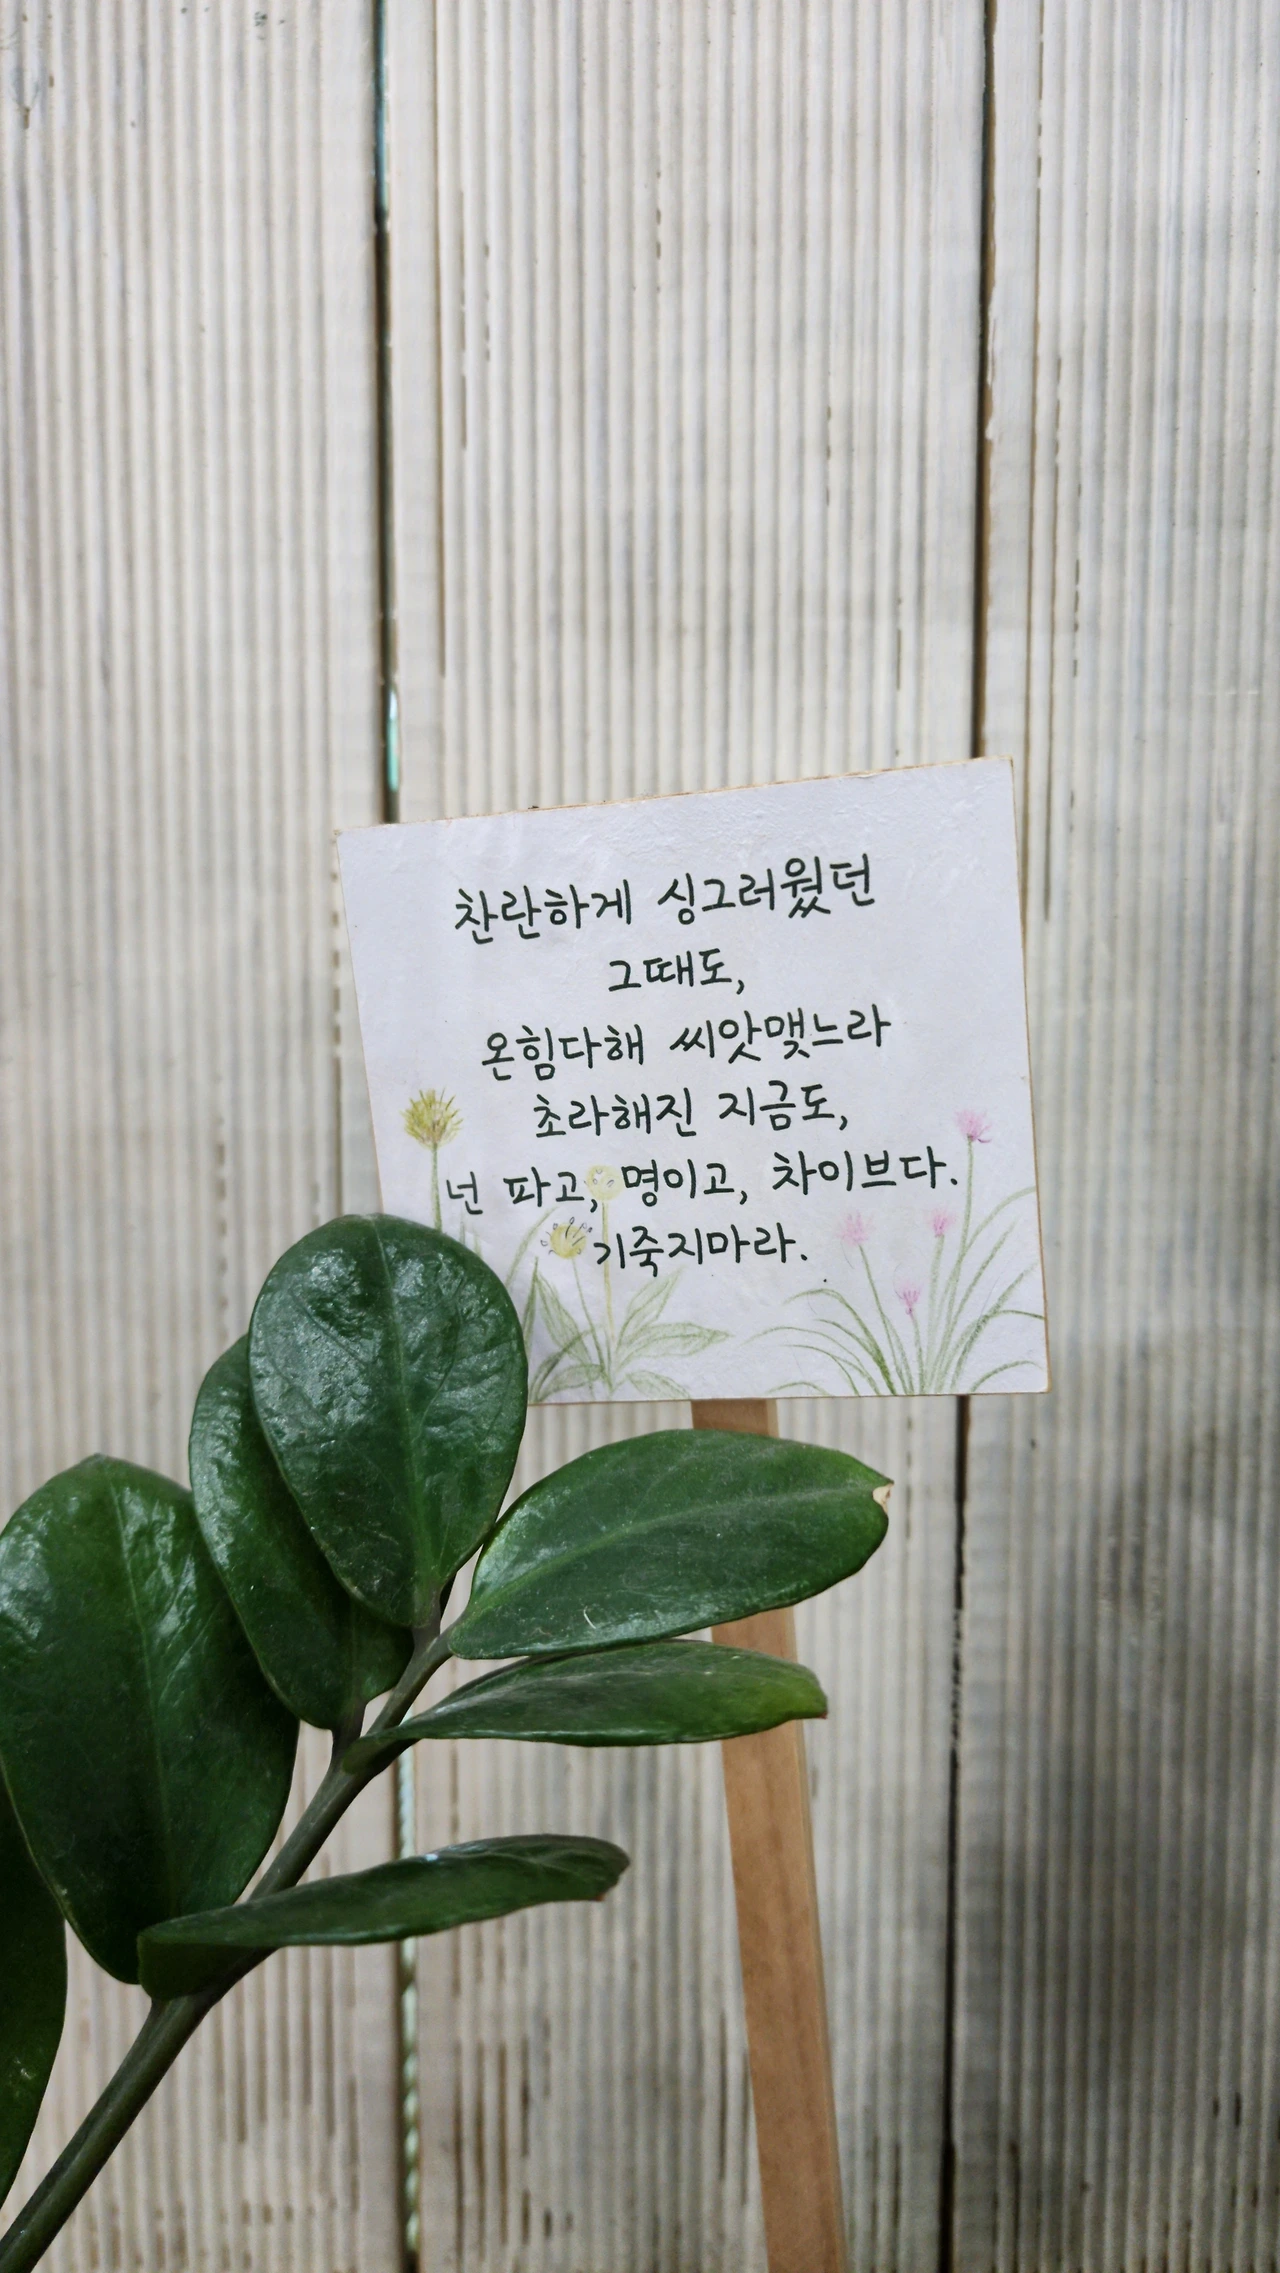 찬란하게 싱그러웠던
그때도,
온힘다해 씨앗맺느라
초라해진 지금도,
넌 파고, 명이고, 차이브다.
기죽지마라.